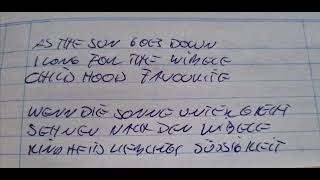 AS THE SUN GOES DOWN
I LONG FOR THE WIBELE
CHILDHOOD FAVOURITE
WENN DIE SONNE UNTERGEHT
SEHNEN NACH DEN WIBELE
KINDHEITS SÜSSIGKEIT